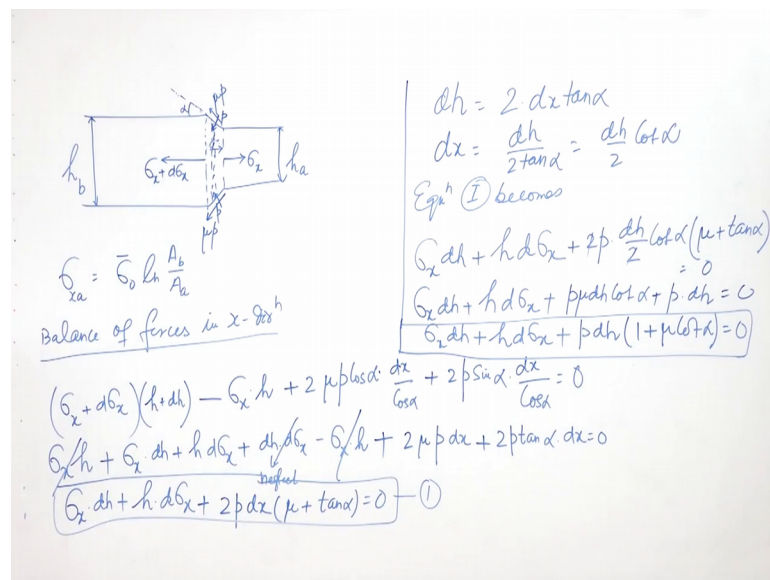 μp
α
p
h_b
σ_x+dσ_x
σ_x
h_a
p
μp
σ_xa = σ̄_0 ln A_b/A_a
Balance of forces in x-dirⁿ
(σ_x + dσ_x)(h+dh) — σ_x·h + 2 μp cosα· dx/cosα + 2p sinα · dx/cosα = 0
σ_x h + σ_x·dh + h dσ_x + dh dσ_x - σ_x·h + 2μp dx + 2p tanα·dx=0
neglect
σ_x·dh + h·dσ_x + 2p dx (μ + tanα) = 0 — ①
dh = 2·dx tanα
dx = dh/2tanα = dh/2 Cotα
Eqnⁿ Ⓘ becomes
σ_x dh + h dσ_x + 2p· dh/2 Cotα (μ + tanα)
= 0
σ_x dh + h dσ_x + pμdh Cotα + p·dh = 0
σ_x dh + h dσ_x + p dh (1 + μCotα) = 0